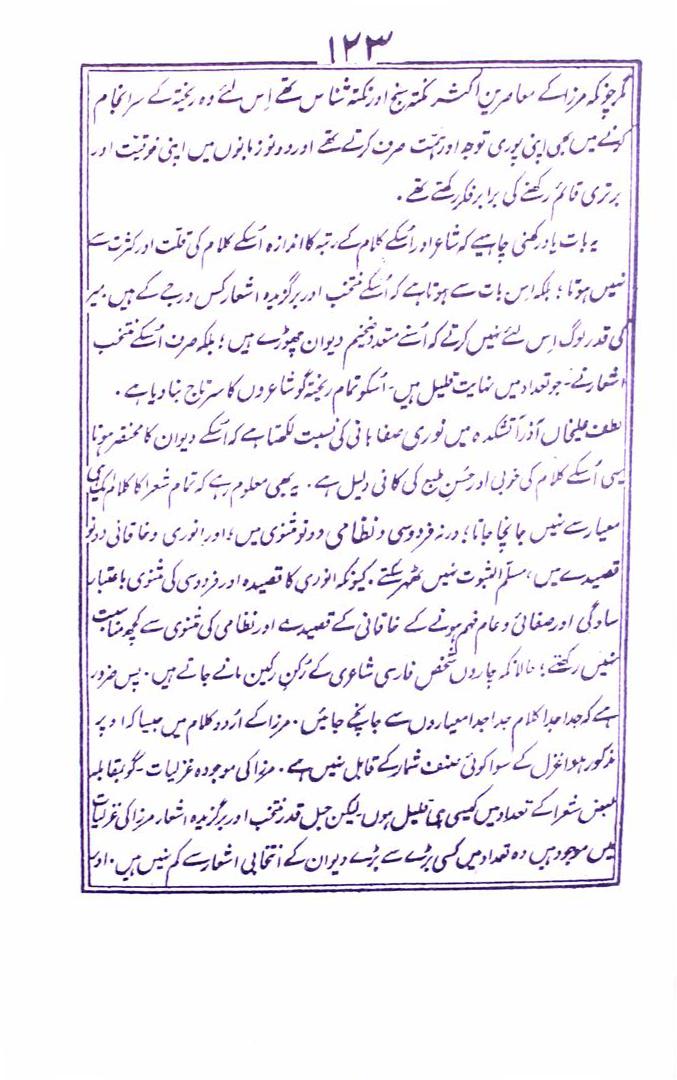 ۱۲۳
مگر چونکہ مرزا کے معاصرین اکثر نکتہ سنج اور نکتہ شناس تھے اِس لئے وہ ریختہ کے سرانجام
کرنے میں بھی اپنی پوری توجہ اور ہمت صرف کرتے تھے اور دونو زبانوں میں اپنی فوقیت اور
برتری قائم رکھنے کی برابر فکر رکھتے تھے۔
یہ بات یاد رکھنی چاہیے کہ شاعر اور اُسکے کلام کے رتبہ کا اندازہ اُسکے کلام کی قلت اور کثرت سے
نہیں ہوتا؛ بلکہ اِس بات سے ہوتا ہے کہ اُسکے منتخب اور برگزیدہ اشعار کس درجے کے ہیں۔ میر
کی قدر لوگ اِس لئے نہیں کرتے کہ اُسنے متعدد ضخیم دیوان چھوڑے ہیں؛ بلکہ صرف اُسکے منتخب
اشعار نے۔ جو تعداد میں نہایت قلیل ہیں۔ اُسکو تمام ریختہ گو شاعروں کا سرتاج بنا دیا ہے۔
لطف علیخاں آذر آتشکدہ میں نوری صفاہانی کی نسبت لکھتا ہے کہ اُسکے دیوان کا مختصر ہونا
یہی اُسکے کلام کی خوبی اور حُسنِ طبع کی کافی دلیل ہے۔ یہ بھی معلوم رہے کہ تمام شعرا کا کلام ایک ہی
معیار سے نہیں جانچا جاتا؛ ورنہ فردوسی و نظامی دونو مثنوی میں؛ اور انوری و خاقانی دونو
قصیدے میں، مسلّم الثبوت نہیں ٹھہر سکتے۔ کیونکہ انوری کا قصیدہ اور فردوسی کی مثنوی باعتبار
سادگی اور صفائی و عام فہم ہونے کے خاقانی کے قصیدے اور نظامی کی مثنوی سے کچھ مناسبت
نہیں رکھتے؛ حالانکہ چاروں شخص فارسی شاعری کے رُکنِ رکین مانے جاتے ہیں۔ پس ضرور
ہے کہ جدا جدا کلام جدا جدا معیاروں سے جانچے جائیں۔ مرزا کے اُردو کلام میں جیسا کہ اوپر
مذکور ہوا غزل کے سوا کوئی صنف شمار کے قابل نہیں ہے۔ مرزا کی موجودہ غزلیات۔ گو بمقابلہ
بعض شعرا کے تعداد میں کیسی ہی قلیل ہوں لیکن جس قدر منتخب اور برگزیدہ اشعار مرزا کی غزلیات
میں موجود ہیں وہ تعداد میں کسی بڑے سے بڑے دیوان کے انتخابی اشعار سے کم نہیں ہیں۔ اور